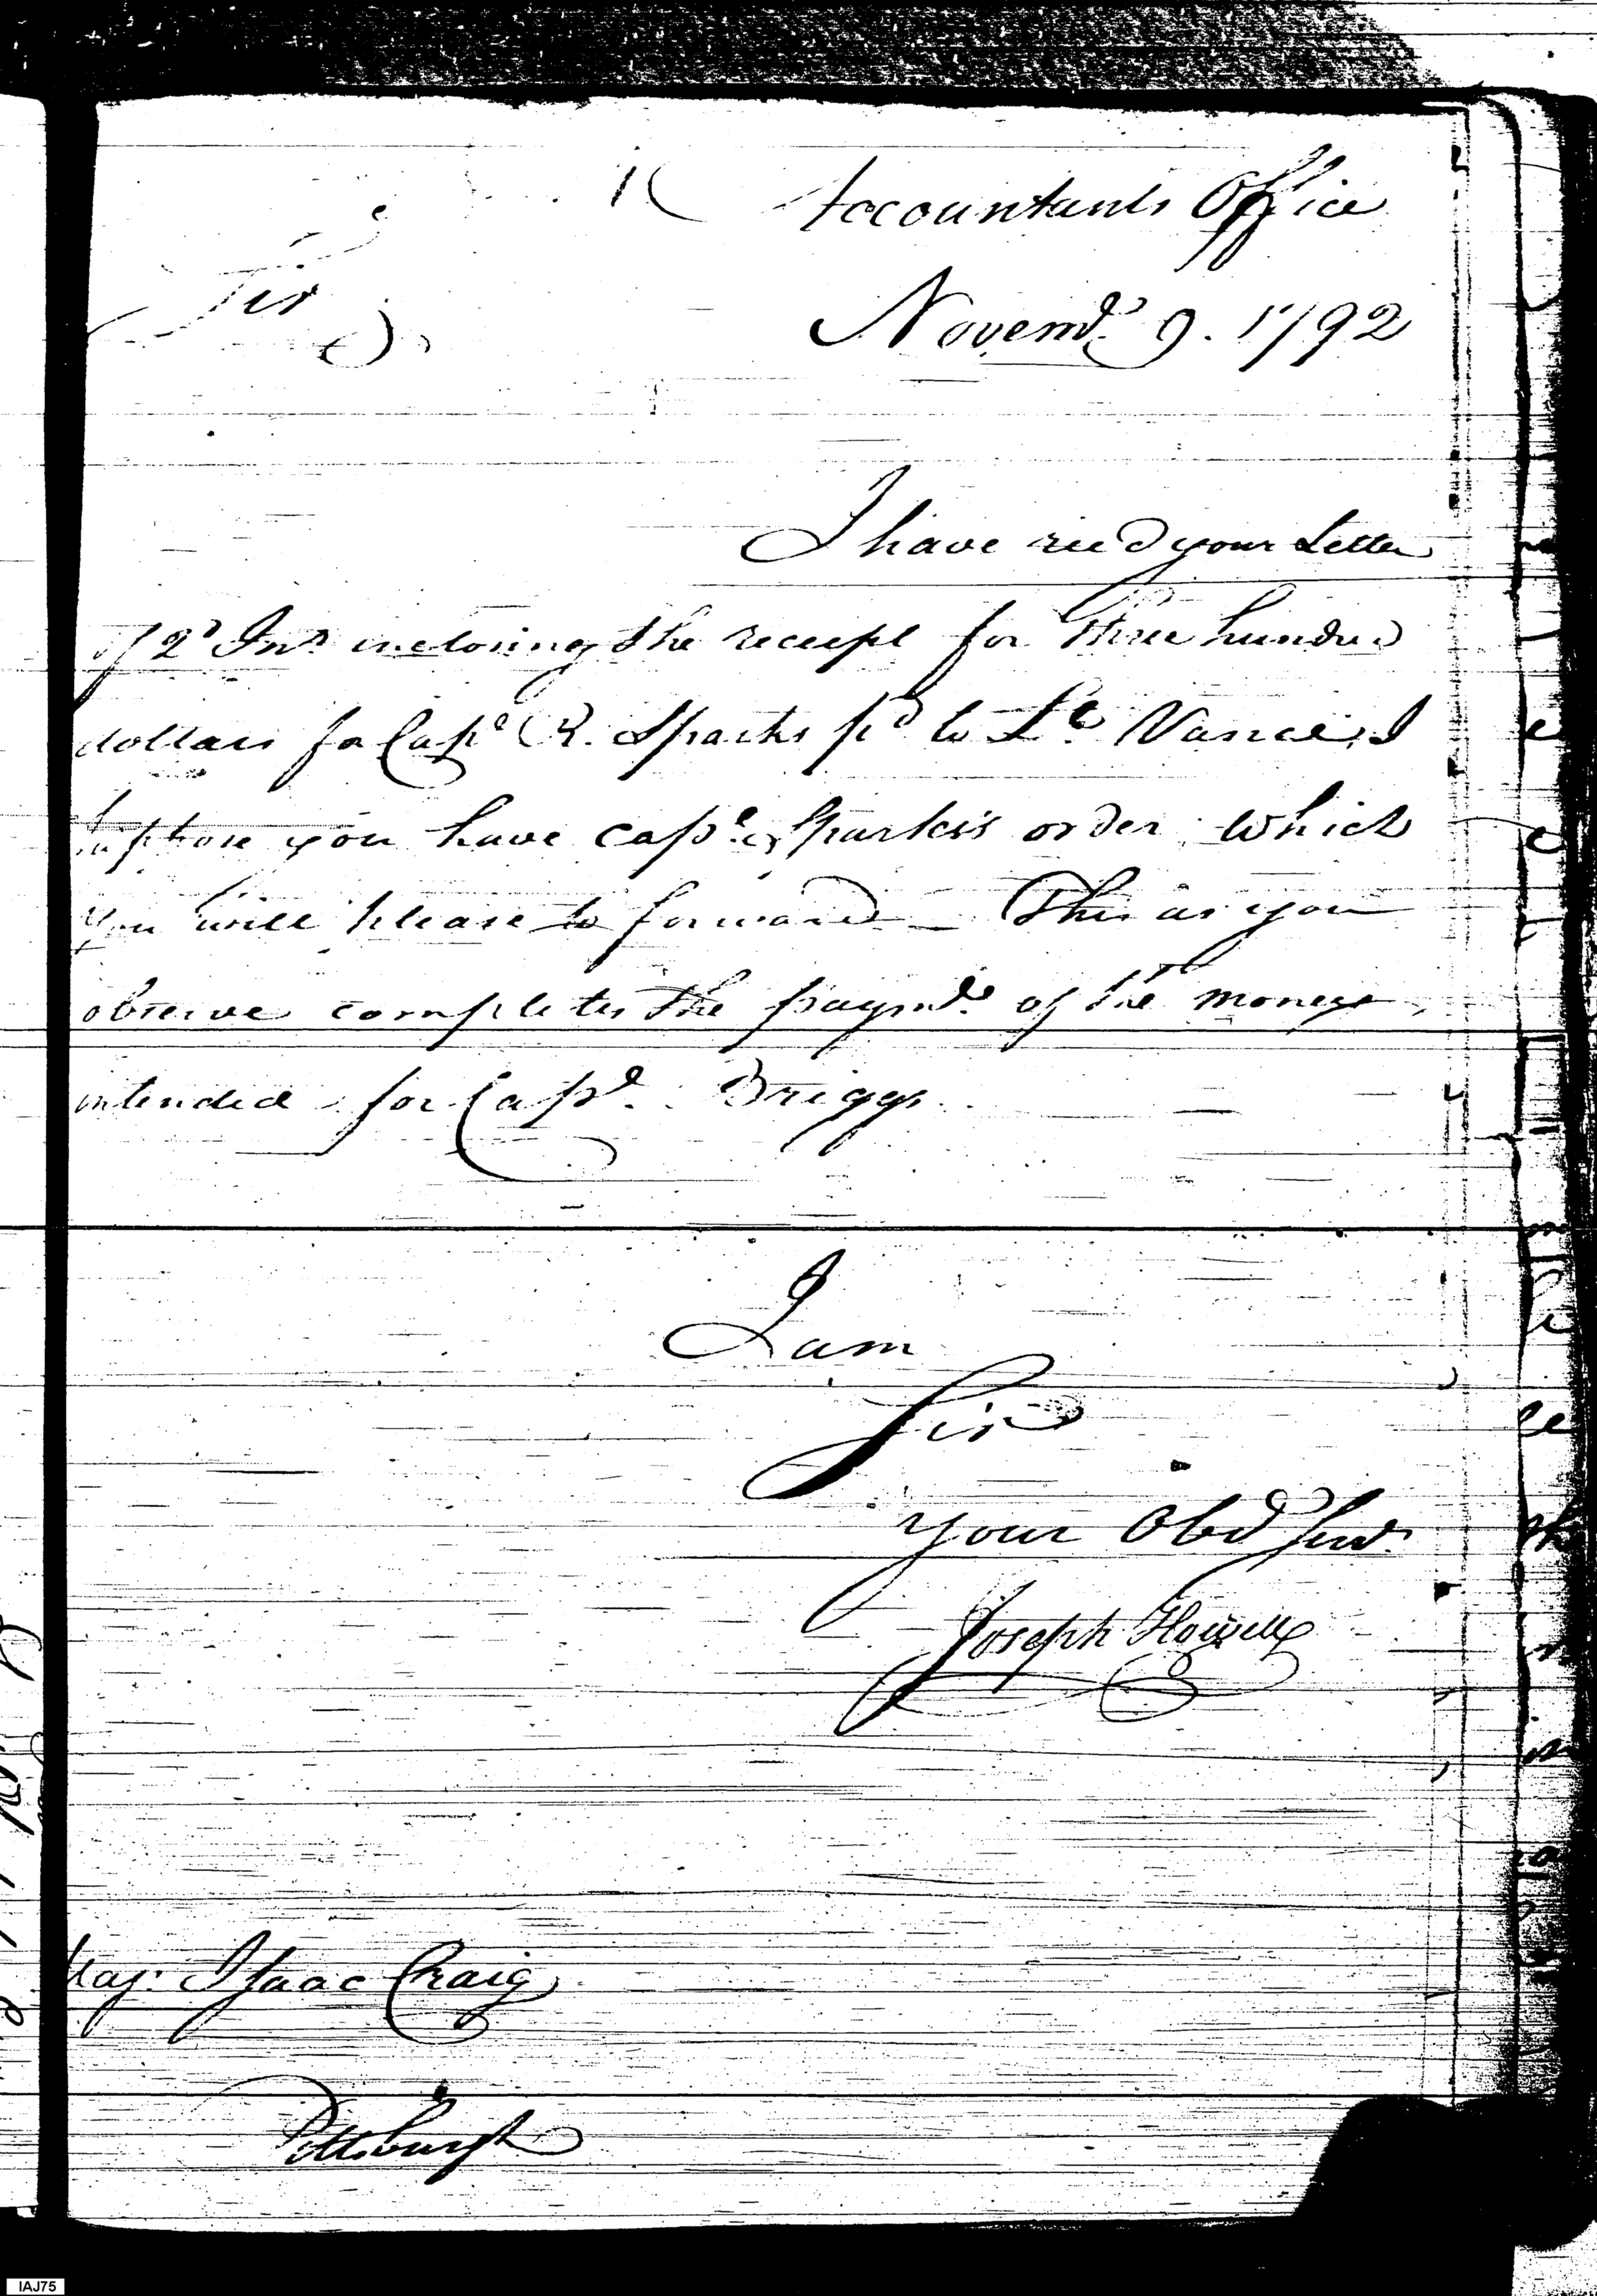 Accountants Office
Sir
Novemb.r 9. 1792
I have recd your Letter
of 2d Inst inclosing the receipt for three hundred
dollars for Capt R. Sparks pd to Lt. Vance, I
suppose you have capt. Sparks's order which
you will please to forward _ This as you
observe completes the paymt. of the money
intended for Capt. Briggs.
I am
Sir
your Obd Servt.
Joseph Howell
Maj. Isaac Craig
Pittsburgh
IAJ75